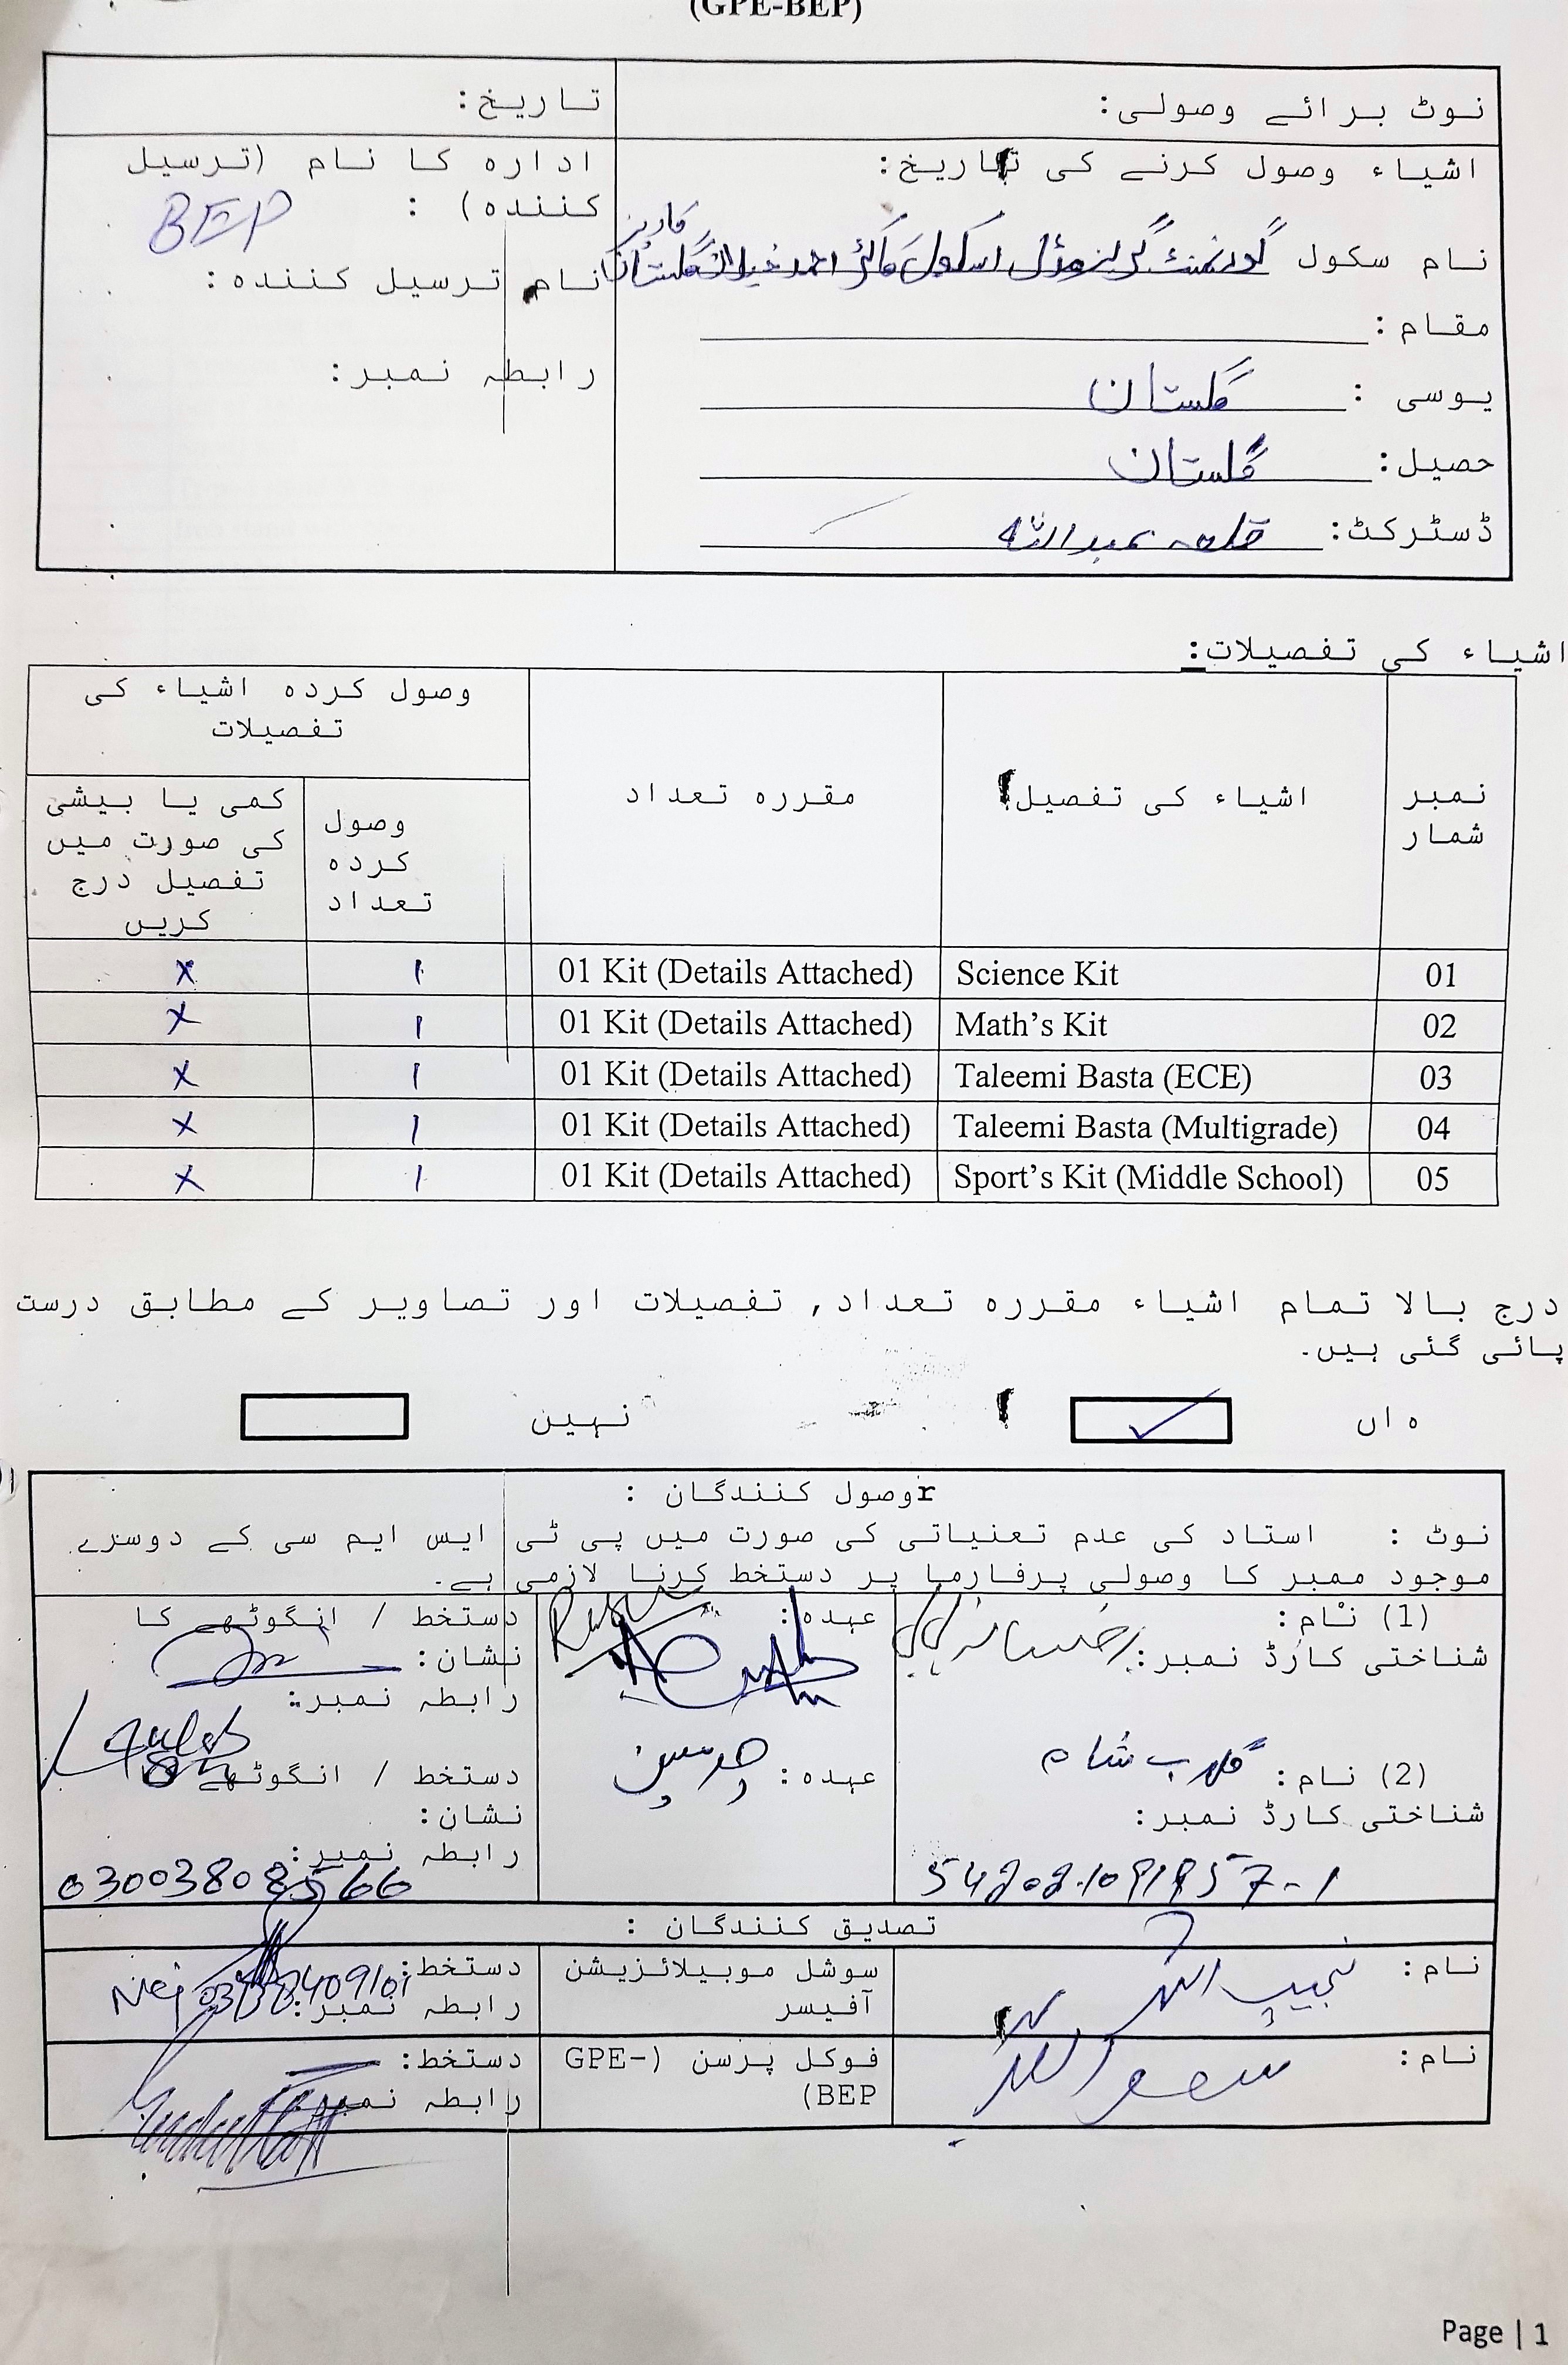 (GPE-BEP)
نوٹ برائے وصولی:
تاریخ:
اشیاء وصول کرنے کی تاریخ:
نام سکول گورنمنٹ گرلز مڈل اسکول احمد خیلان گلستان
کاریز
مقام:
یوسی : گلستان
حصیل: گلستان
ڈسٹرکٹ: قلعہ عبداللہ
ادارہ کا نام (ترسیل
کنندہ) : BEP
نام ترسیل کنندہ:
رابطہ نمبر:
اشیاء کی تفصیلات:
نمبر شمار
اشیاء کی تفصیل
مقررہ تعداد
وصول کردہ اشیاء کی
تفصیلات
وصول
کردہ
تعداد
کمی یا بیشی
کی صورت میں
تفصیل درج
کریں
01 Science Kit 01 Kit (Details Attached) 1 x
02 Math’s Kit 01 Kit (Details Attached) 1 x
03 Taleemi Basta (ECE) 01 Kit (Details Attached) 1 x
04 Taleemi Basta (Multigrade) 01 Kit (Details Attached) 1 x
05 Sport’s Kit (Middle School) 01 Kit (Details Attached) 1 x
درج بالا تمام اشیاء مقررہ تعداد, تفصیلات اور تصاویر کے مطابق درست
پائی گئی ہیں۔
ہ اں ✓ نہین
rوصول کنندگان :
نوٹ : استاد کی عدم تعنیاتی کی صورت میں پی ٹی ایس ایم سی کے دوسرے
موجود ممبر کا وصولی پرفارما پر دستخط کرنا لازمی ہے۔
(1) نام:
شناختی کارڈ نمبر:
عہدہ:
دستخط / انگوٹھے کا
نشان:
رابطہ نمبر:
(2) نام: گلاب شام
شناختی کارڈ نمبر:
عہدہ:
دستخط / انگوٹھے کا
نشان:
رابطہ نمبر:
03003808566
تصدیق کنندگان :
نام: نجیب اللہ
سوشل موبیلائزیشن
آفیسر
دستخط:
رابطہ نمبر:
نام: سعد اللہ
فوکل پرسن (GPE-
BEP)
دستخط:
رابطہ نمبر:
Page | 1